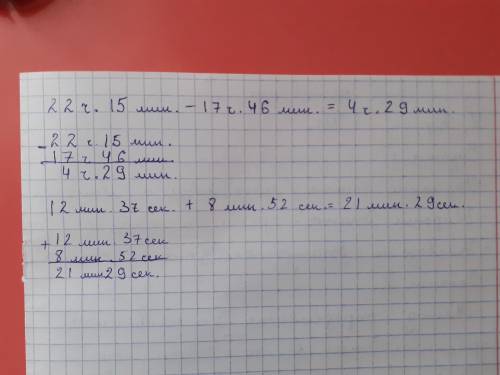 22 ч. 15 мин. - 17 ч. 46 мин. = 4 ч. 29 мин.
- 22 ч. 15 мин.
17 ч. 46 мин.
4 ч. 29 мин.
12 мин. 37 сек. + 8 мин. 52 сек = 21 мин. 29 сек.
+ 12 мин. 37 сек
8 мин. 52 сек
21 мин 29 сек.